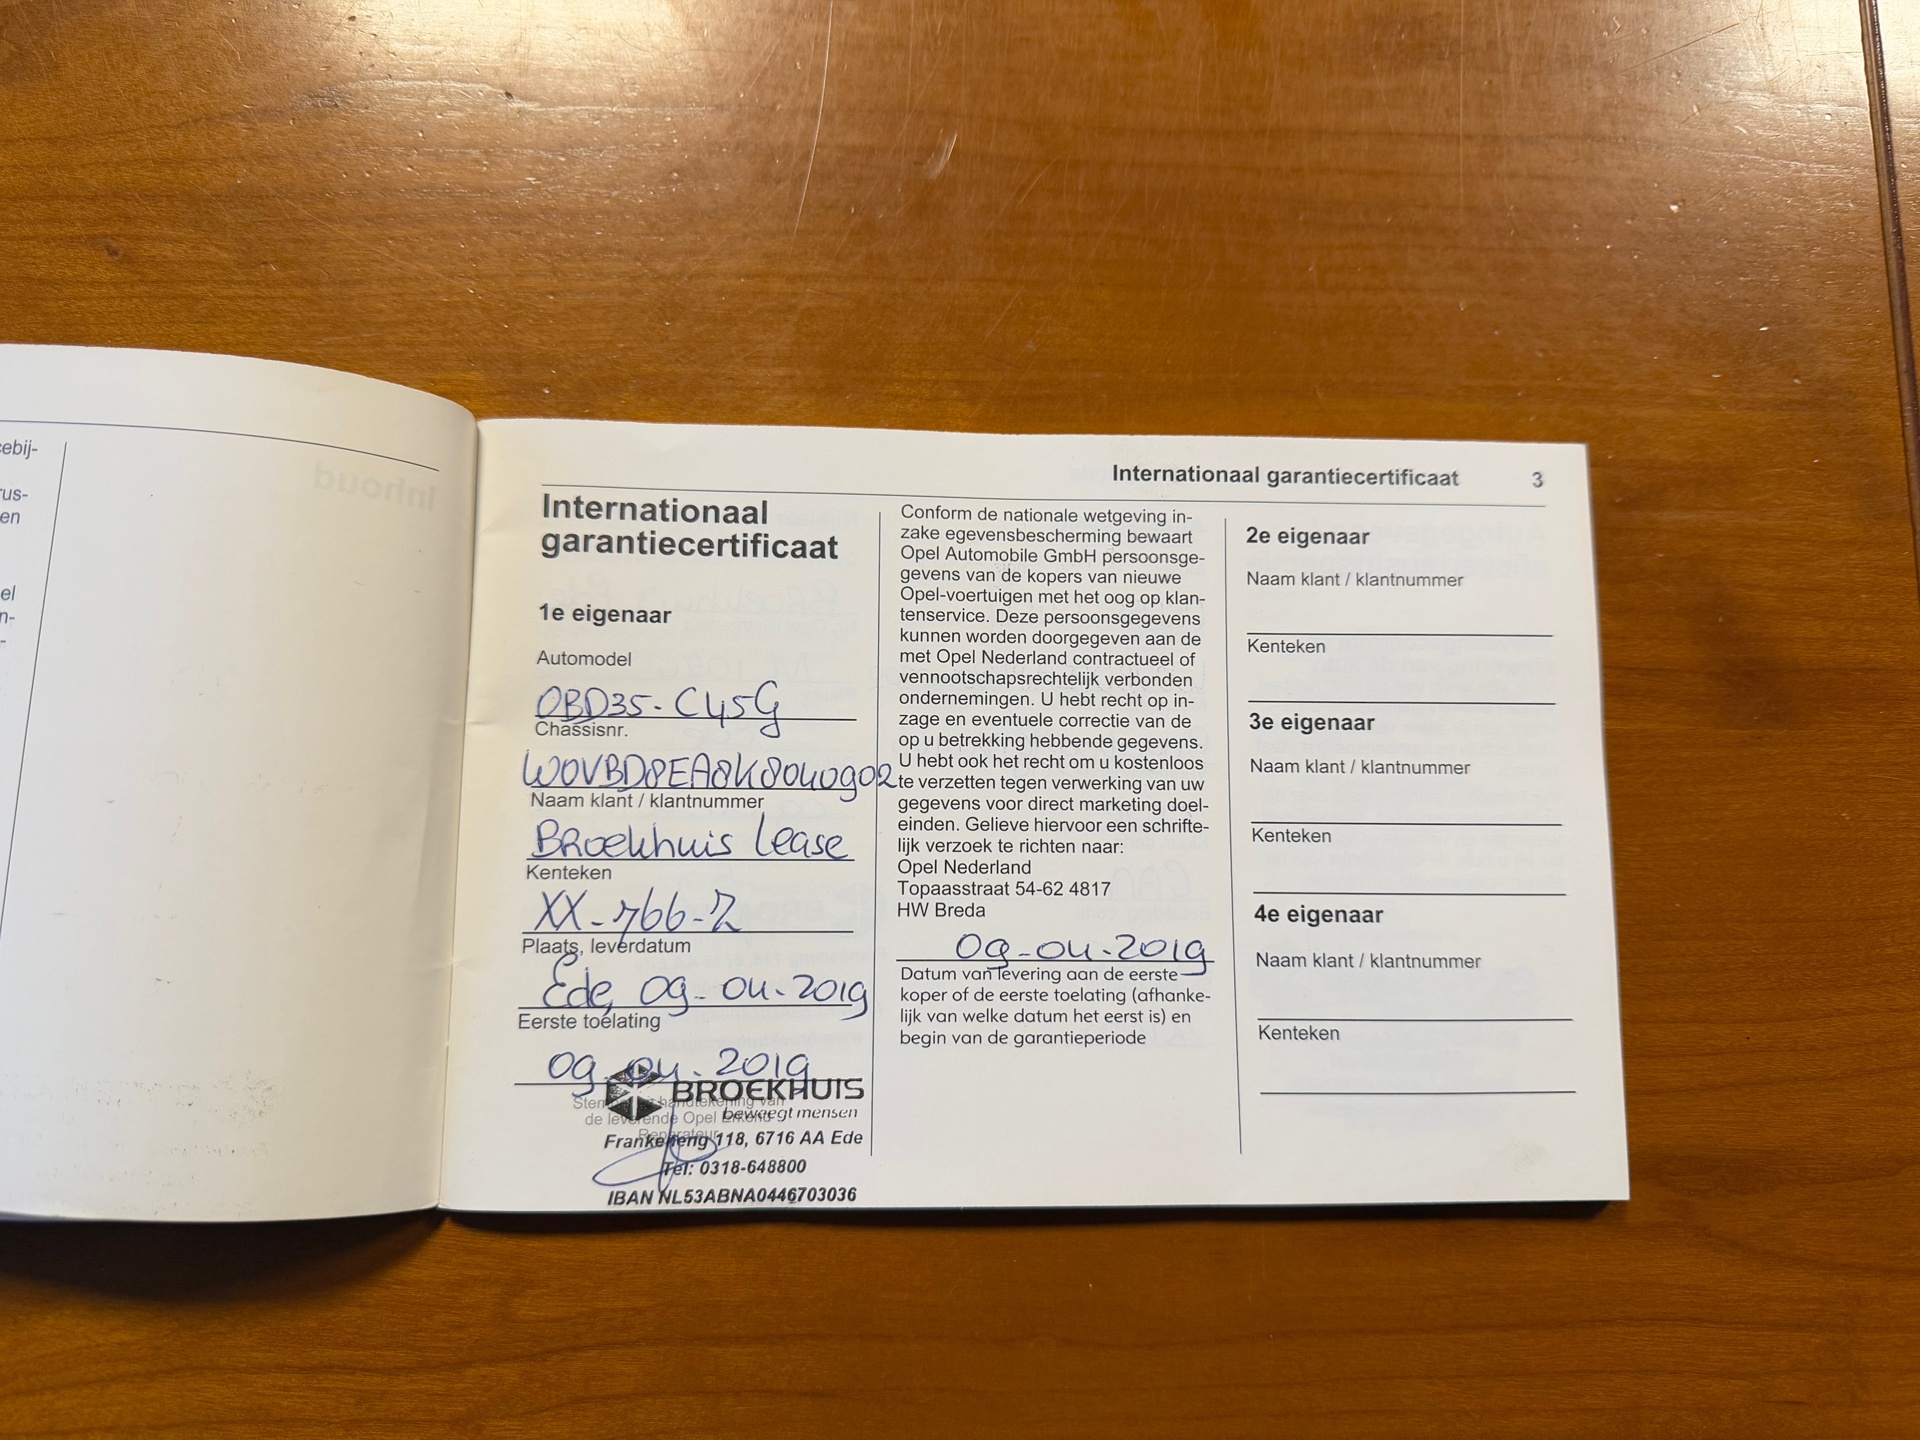 cebij-
rus-
en
el
n-
-
Inhoud
Internationaal garantiecertificaat 3
Internationaal
garantiecertificaat
1e eigenaar
Automodel
OBD35-C45G
Chassisnr.
W0VBD8EA8K8040902
Naam klant / klantnummer
Broekhuis Lease
Kenteken
XX-766-Z
Plaats, leverdatum
Ede, 09-04-2019
Eerste toelating
09-04-2019
Stempel en handtekening van
de leverende Opel Erkend
Reparateur
BROEKHUIS
beweegt mensen
Frankeneng 118, 6716 AA Ede
Tel: 0318-648800
IBAN NL53ABNA0446703036
Conform de nationale wetgeving in-
zake egevensbescherming bewaart
Opel Automobile GmbH persoonsge-
gevens van de kopers van nieuwe
Opel-voertuigen met het oog op klan-
tenservice. Deze persoonsgegevens
kunnen worden doorgegeven aan de
met Opel Nederland contractueel of
vennootschapsrechtelijk verbonden
ondernemingen. U hebt recht op in-
zage en eventuele correctie van de
op u betrekking hebbende gegevens.
U hebt ook het recht om u kostenloos
te verzetten tegen verwerking van uw
gegevens voor direct marketing doel-
einden. Gelieve hiervoor een schrifte-
lijk verzoek te richten naar:
Opel Nederland
Topaasstraat 54-62 4817
HW Breda
09-04-2019
Datum van levering aan de eerste
koper of de eerste toelating (afhanke-
lijk van welke datum het eerst is) en
begin van de garantieperiode
2e eigenaar
Naam klant / klantnummer
Kenteken
3e eigenaar
Naam klant / klantnummer
Kenteken
4e eigenaar
Naam klant / klantnummer
Kenteken